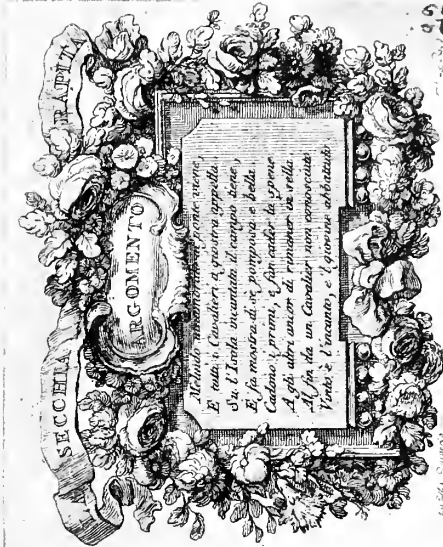 SECCHIA RAPITA
ARGOMENTO
Melindo innamorato al ponte viene,
E tutti i Cavalieri a giostra appella
Su l'Isola incantata il campo tiene,
E fa mostra di se pomposa e bella.
Cadono i primi, e fan cader la spene
A gli altri ancor di rimaner in sella.
Al fin da un Cavalier non conosciuto
Vinto è l'incanto, e il giovane abbattuto.